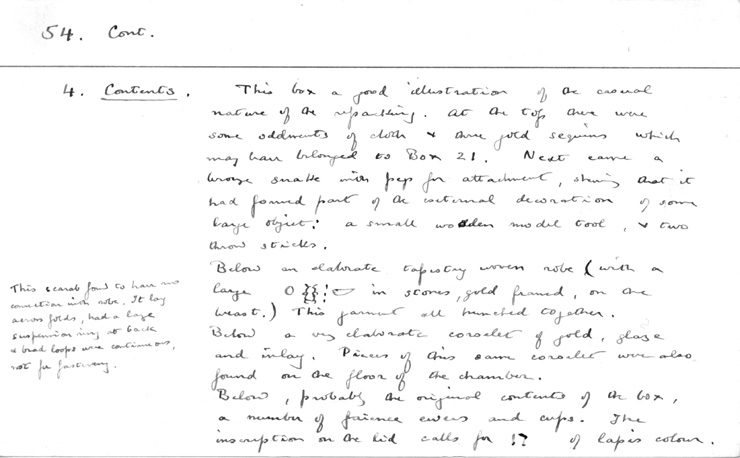 54. Cont.
4. Contents. This box a good illustration of the casual
nature of the repacking. At the top there were
some oddments of cloth & three gold sequins which
may have belonged to Box 21. Next came a
bronze snake with pegs for attachment, showing that it
had formed part of the external decoration of some
large object: a small wooden model tool, & two
throw sticks.
Below an elaborate tapestry woven robe (with a
large in stones, gold framed, on the
breast.) This garment all bunched together.
Below a very elaborate corselet of gold, glaze
and inlay. Pieces of this same corselet were also
found on the floor of the chamber.
Below, probably the original contents of the box,
a number of faience ewers and cups. The
inscription on the lid calls for of lapis colour.
This scarab found to have no
connection with robe. It lay
across folds, had a large
suspension ring at back
& bead loops were continuous,
not for fastening.